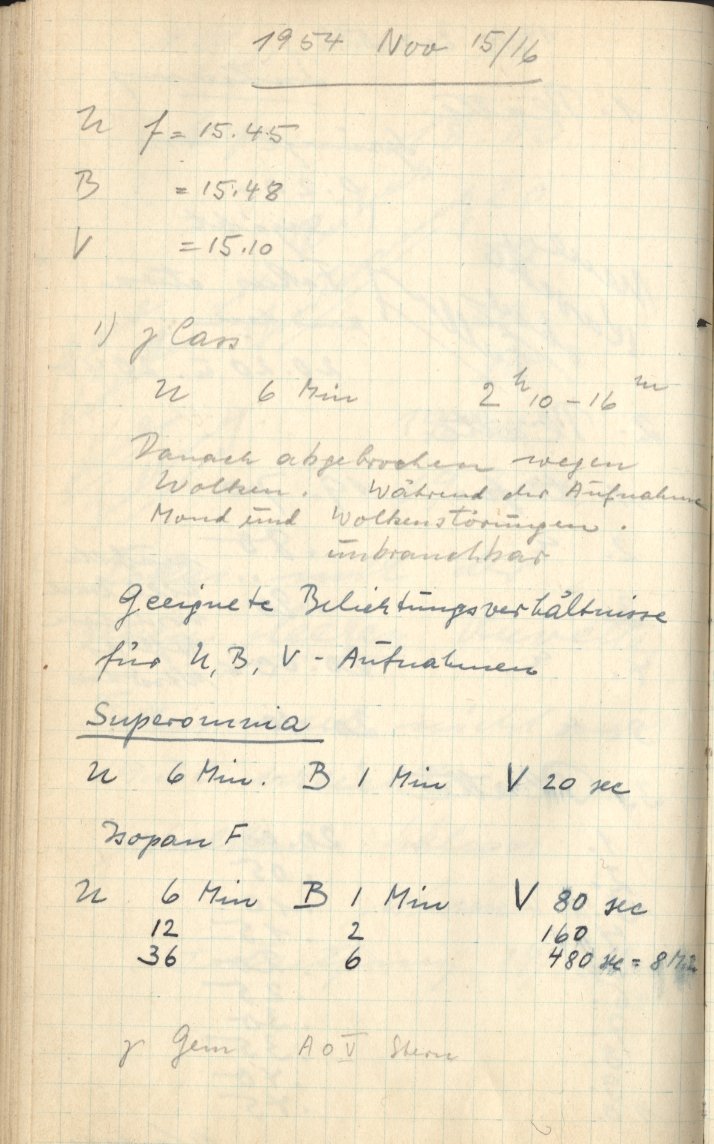 1954 Nov 15/16
U f = 15.45
B = 15.48
V = 15.10
1) γ Cass
U 6 Min 2 h 10 - 16 m
Danach abgebrochen wegen
Wolken. Während der Aufnahme
Mond und Wolkenstörungen.
unbrauchbar
Geeignete Belichtungsverhältnisse
für U, B, V - Aufnahmen
Superomnia
U 6 Min. B 1 Min V 20 sec
Isopan F
U 6 Min B 1 Min V 80 sec
12 2 160
36 6 480 sec = 8 Min
γ Gem A0V Stern